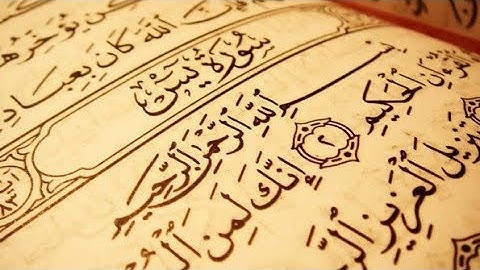 كِن يُؤَخِّرُهُ
ٱللَّهَ كَانَ بِعِبَادِ
سُورَةُ يسٓ
بِسْمِ ٱللَّهِ ٱلرَّحْمَٰنِ ٱلرَّحِيمِ
ٱلْقُرْءَانِ ٱلْحَكِيمِ ٢ إِنَّكَ لَمِنَ ٱلْمُ
تَنزِيلَ ٱلْعَزِيزِ ٱلرَّ